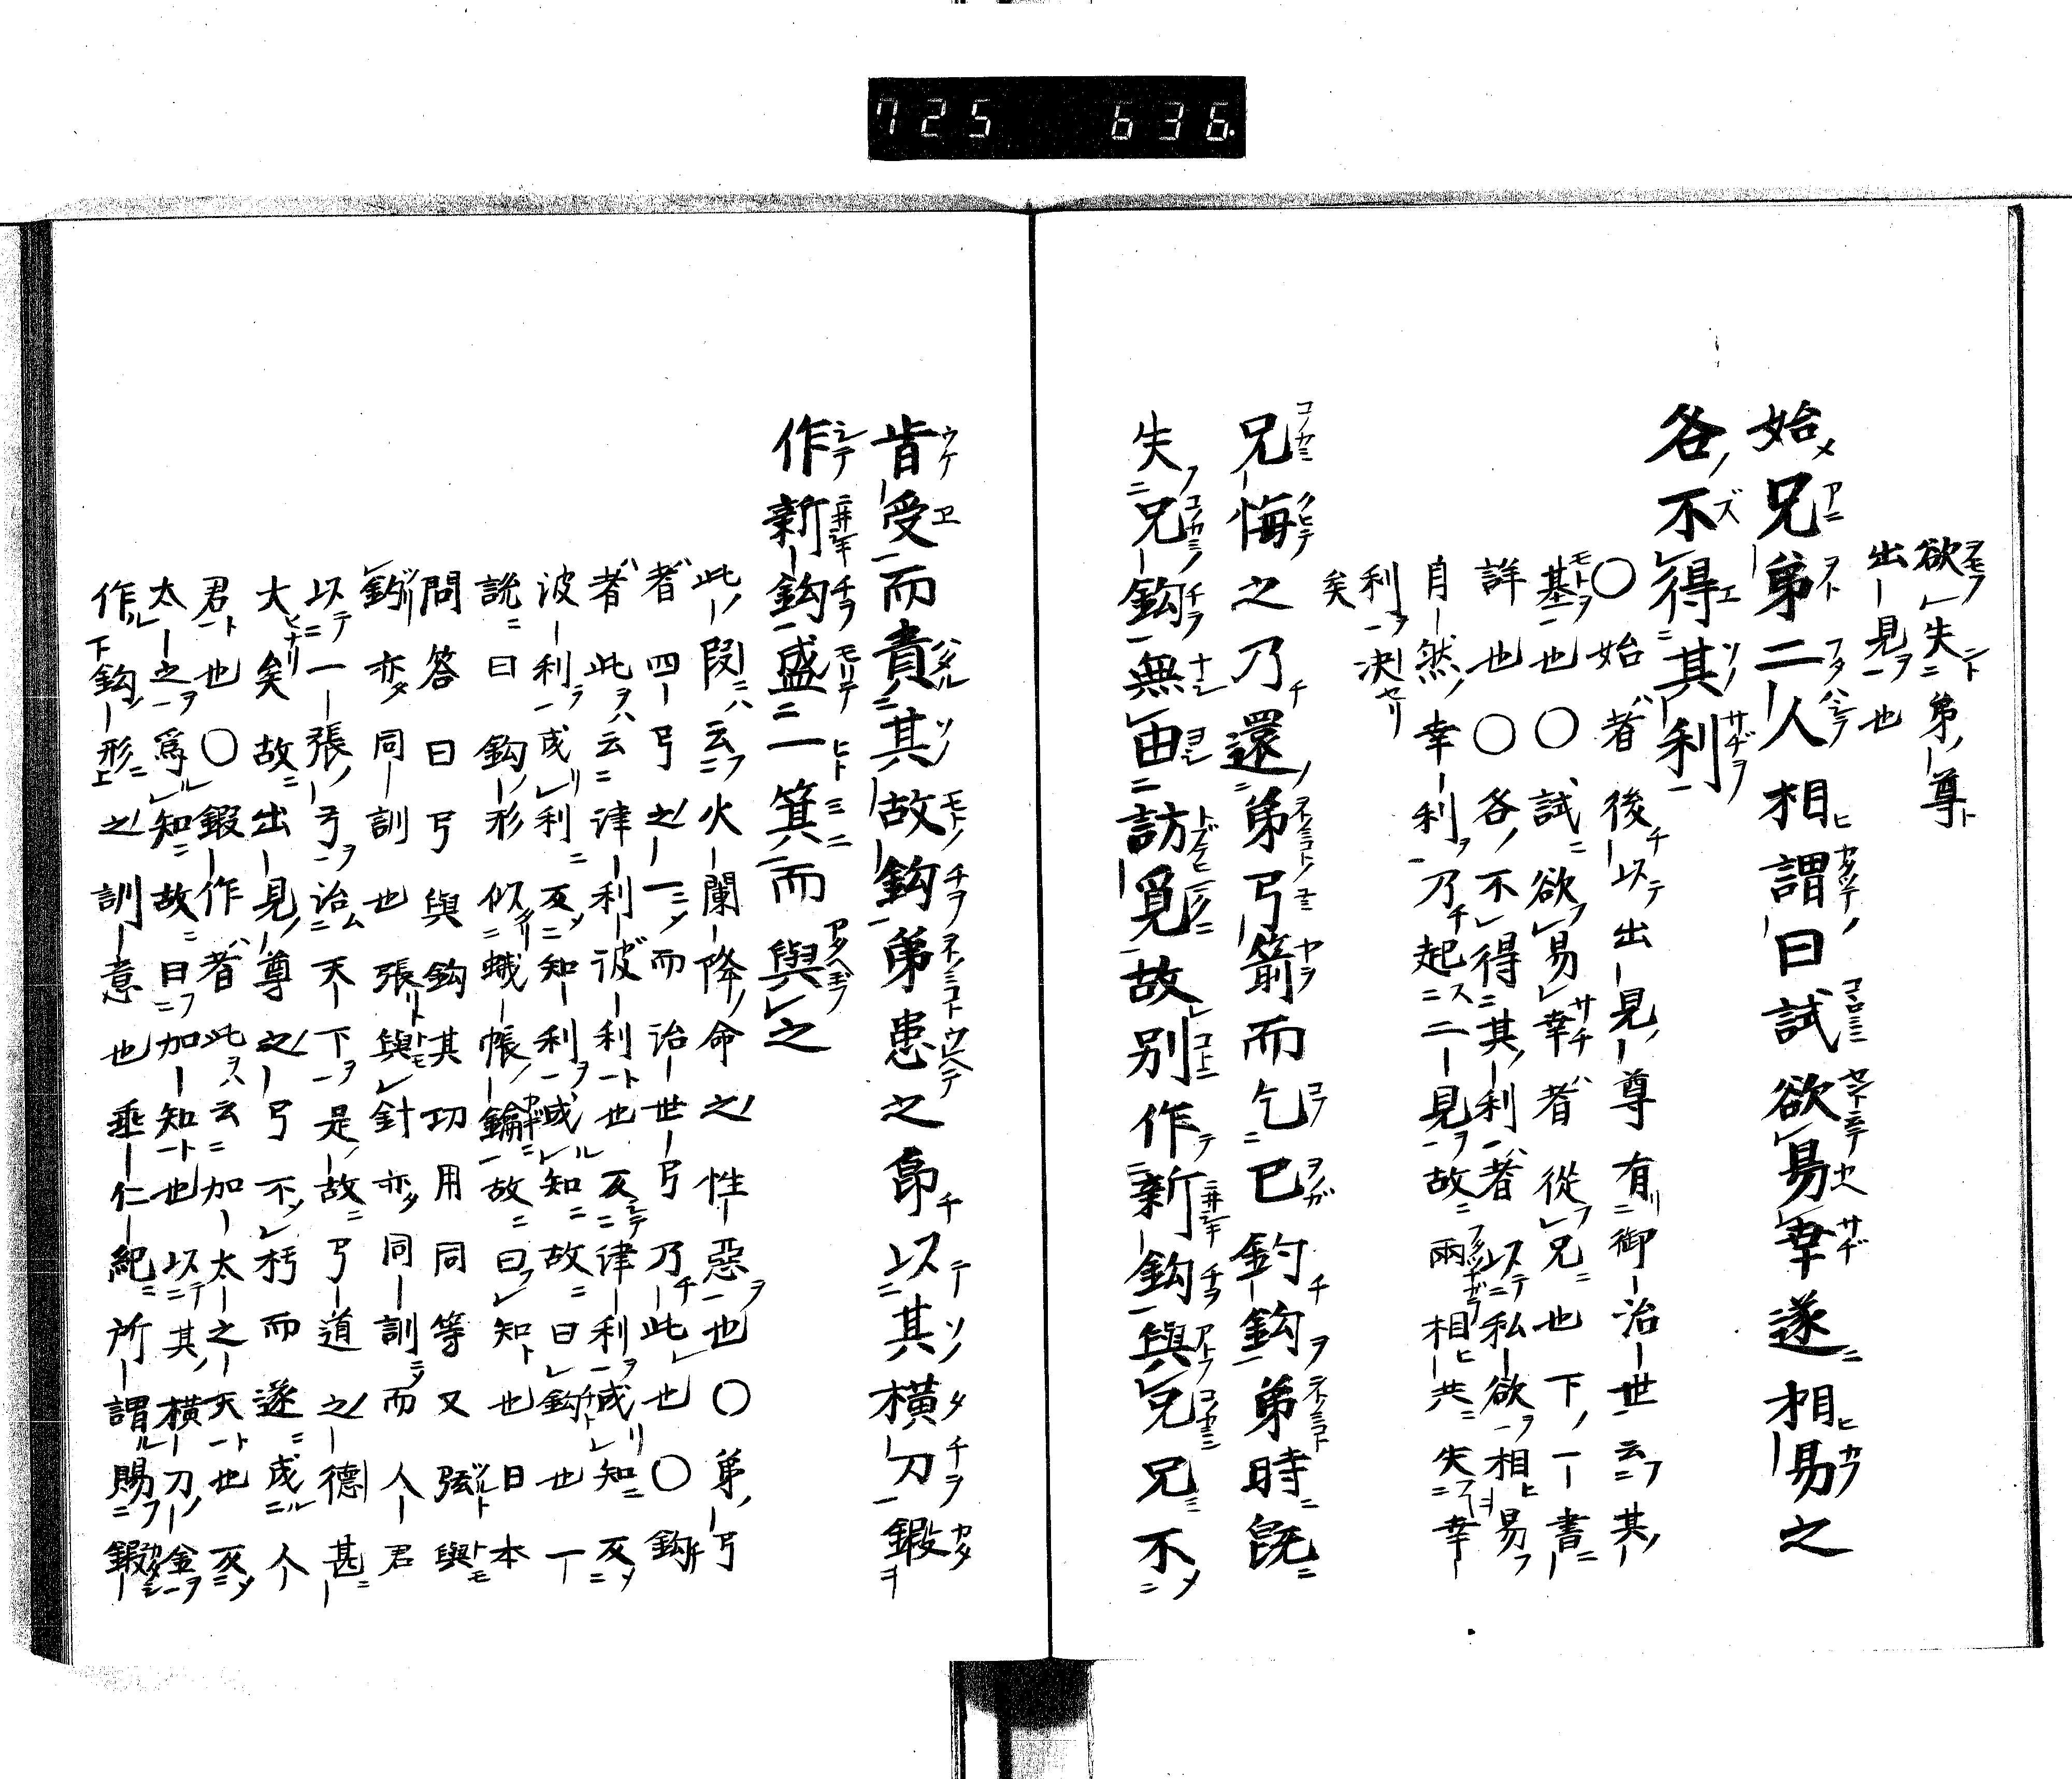 725 636
欲失弟尊
出見也
始兄弟二人相謂曰試欲易幸遂相易之
各不得其利
〇始者後以出見尊有御治世云其
基也〇試欲易幸者從兄也下一書
詳也〇各不得其利者以私欲相易
自然幸利乃起二見故兩相共失幸
利決
矣
兄悔之乃還弟弓箭而乞己釣鈎弟時既
失兄鈎無由訪覓故別作新鈎與兄兄不
肯受而責其故鈎弟患之即以其橫刀鍛
作新鈎盛一箕而與之
此段云火闌降命之性惡也〇弟弓
者四弓之一而治世弓乃此也〇鈎
者此云津利彼利也反津利成知反
波利成利反知利成知故曰鈎也一
說曰鈎形似蛾帳鑰故曰知也日本
問答曰弓與鈎其功用同等又弦與
鈎亦同訓也張與針亦同訓而人君
以一張弓治天下是故弓道之德甚
大矣故出見尊之弓不朽而遂成人
君也〇鍜作者此云加太之天也反
太之爲知故曰加知也以其橫刀金
作鈎形之訓意也垂仁紀所謂賜鍜